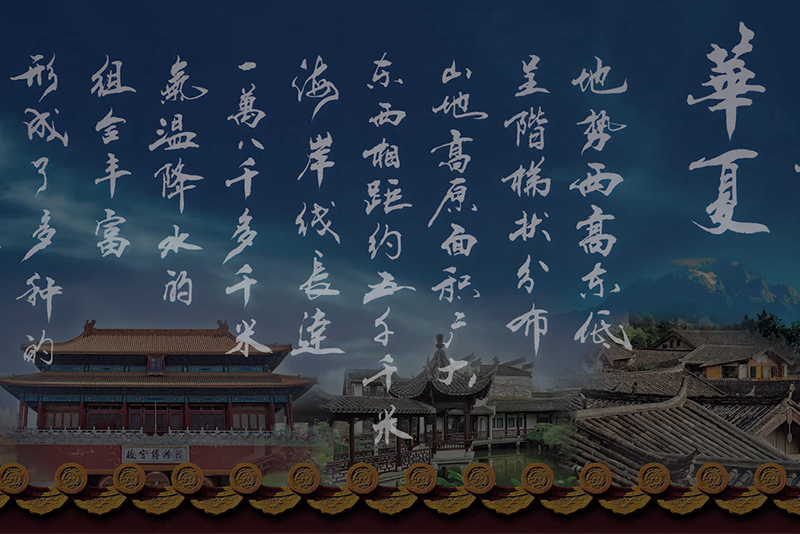 華夏
地势西高东低
呈階梯状分布
山地高原面积广大
东西相距约五千千米
海岸线長達
一萬八千多千米
氣温降水的
组合丰富
形成了多种的
故宫博物院